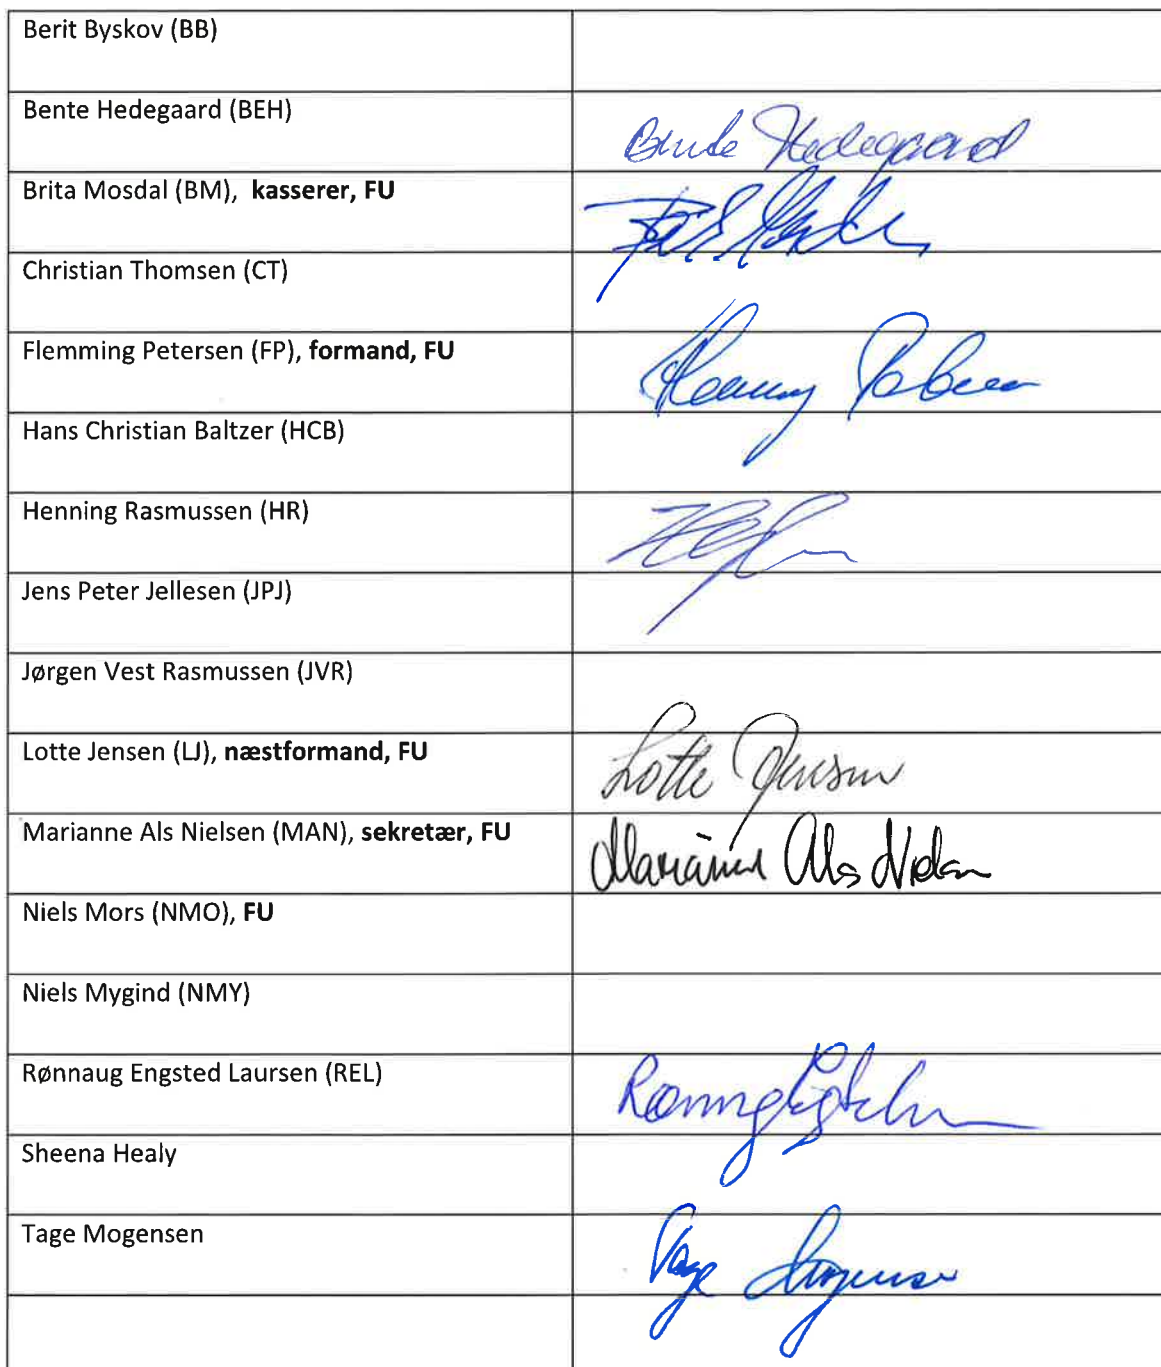 Berit Byskov (BB)
Bente Hedegaard (BEH)
Bente Hedegaard
Brita Mosdal (BM), kasserer, FU
Christian Thomsen (CT)
Flemming Petersen (FP), formand, FU
Hans Christian Baltzer (HCB)
Henning Rasmussen (HR)
Jens Peter Jellesen (JPJ)
Jørgen Vest Rasmussen (JVR)
Lotte Jensen (LJ), næstformand, FU
Lotte Jensen
Marianne Als Nielsen (MAN), sekretær, FU
Marianne Als Nielsen
Niels Mors (NMO), FU
Niels Mygind (NMY)
Rønnaug Engsted Laursen (REL)
Sheena Healy
Tage Mogensen
Tage Mogensen